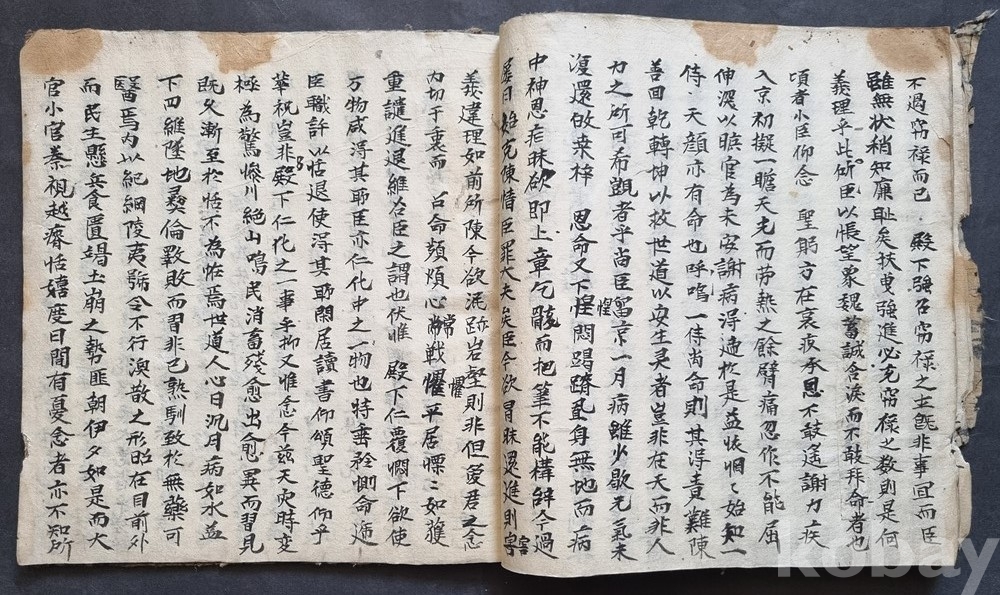 不過窃禄而已 殿下强召窃禄之士旣非事宜而臣
雖無状稍知廉耻矣扶曳强進必充窃禄之数則是何
義理乎此所臣以悵望象魏蓄誠含淚而不敢拜命者也
項者小臣仰念 聖躬方在哀疚承恩不敢遥謝力疾
入京初擬一瞻天光而劳熱之餘臂痛忍作不能屈
伸淚以曠官為未安謝病得逓於是益悵惘〻始知一
侍 天顔亦有命也呼嗚一侍尚命則其得責難陳
善回乾轉坤以救世道以安生灵者豈非在天而非人
力之所可希覬者乎尚臣留京一月病雖少歇元氣未
復還做桑梓 恩命又下惶悶蹋蹐乱身無地而病
中神思疟昧欲即上章乞骸而把筆不能構辭今過
屡日始克陳情臣罪大矣臣今欲冒昧還進則害
義違理如前所陳今欲泯跡岩壑則非但愛君之念
力切于衷而 召命頻煩心常戰懼平居慄〻如獲
重譴進退維谷臣之謂也伏惟 殿下仁覆憫下欲使
万物咸得其所臣亦仁化中之一物也特垂矜惻命逓
臣職許以恬退使得其所閑居讀書仰頌聖德仰乎
華祝豈非殿下仁化之一事乎抑又惟念今兹天灾時变
極為驚慘川絶山鳴民消畜殘愈出愈異而習見
既久漸至於恬不為恠焉世道人心日沉月病如水益
下四維墜地彛倫斁敗而習非已熟馴致於無藥可
醫焉内以紀綱陵夷號令不行渙散之形昭在目前外
而民生懸兵食匱竭土崩之勢匪朝伊夕如是而大
官小官秦視越瘠恬嬉度日間有憂念者亦不知所
kobay